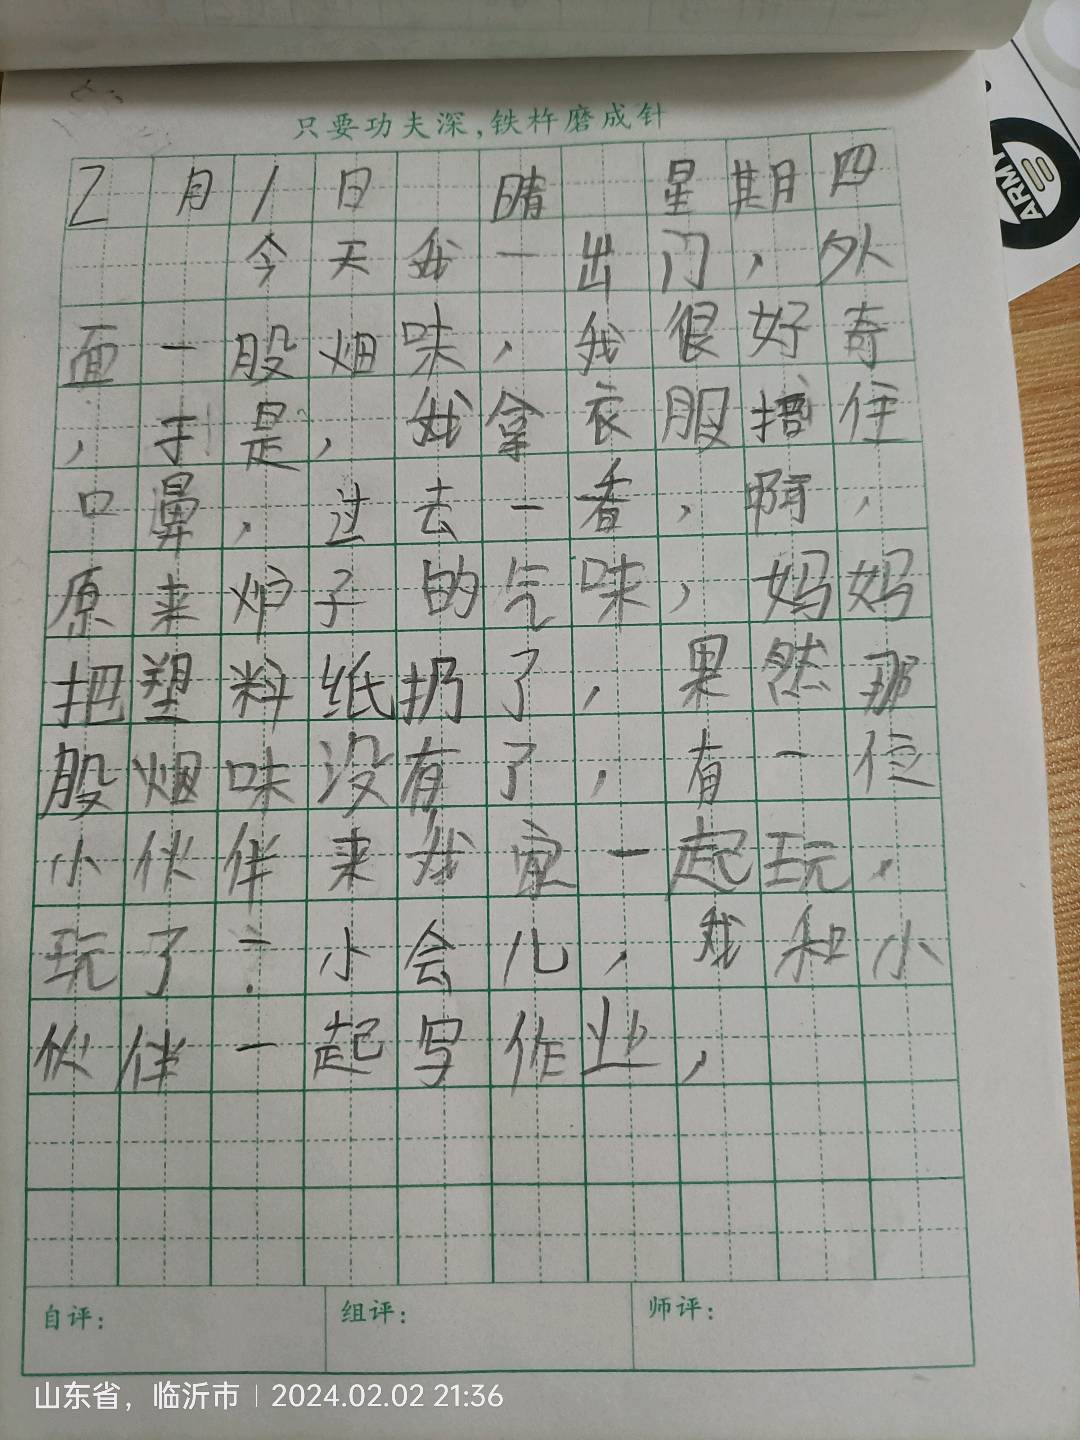 只要功夫深,铁杵磨成针
2月1日 晴 星期四
今天我一出门，外
面一股烟味，我很好奇
，于是，我拿衣服捂住
口鼻，过去一看，啊，
原来炉子的气味，妈妈
把塑料纸扔了，果然那
股烟味没有了，有一位
小伙伴来我家一起玩，
玩了一小会儿，我和小
伙伴一起写作业，
自评：
组评：
师评：
ARMY
山东省，临沂市 | 2024.02.02 21:36